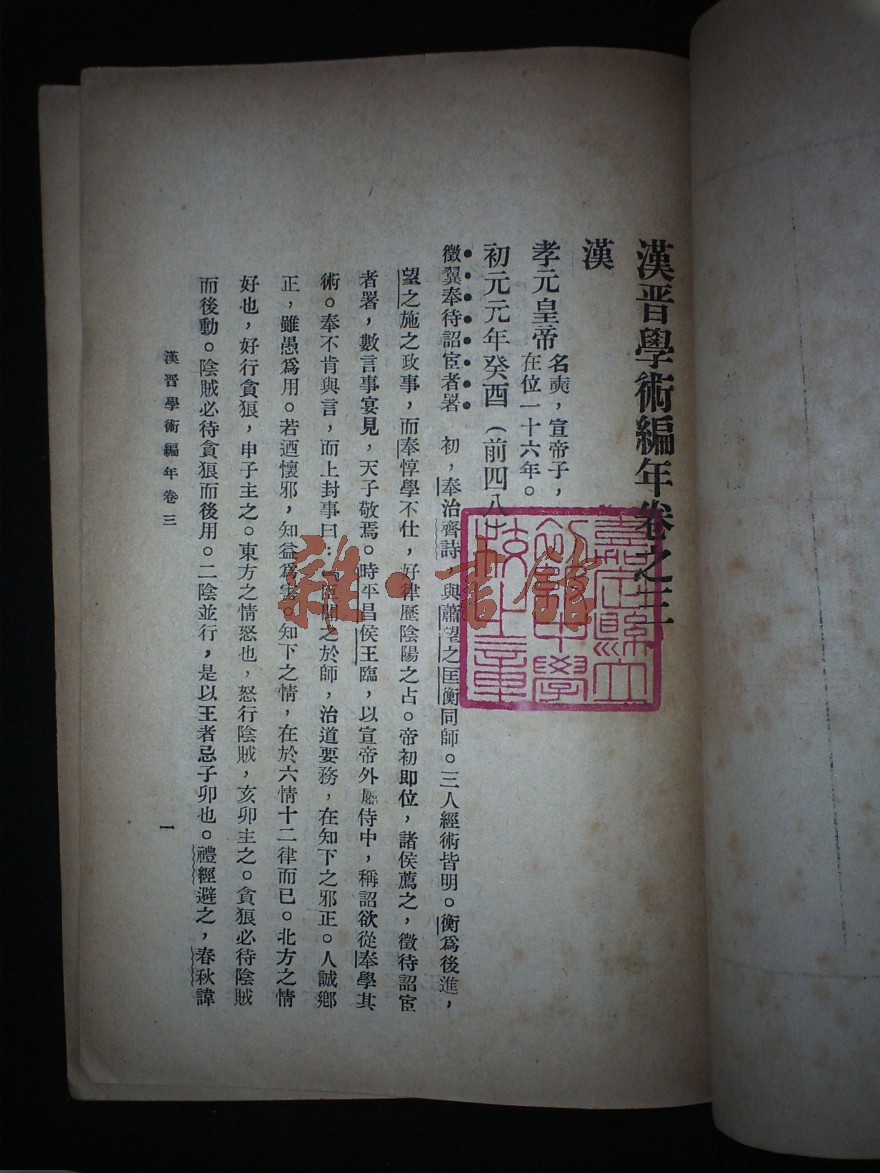 漢晋學術編年卷之三
漢
孝元皇帝 名奭，宣帝子，在位一十六年。
初元元年癸酉（前四八）
徵翼奉待詔宦者署　初，奉治齊詩，與蕭望之匡衡同師。三人經術皆明。衡爲後進，
望之施之政事，而奉惇學不仕，好律歷陰陽之占。帝初即位，諸侯薦之，徵待詔宦
者署，數言事宴見，天子敬焉。時平昌侯王臨，以宣帝外屬侍中，稱詔欲從奉學其
術。奉不肯與言，而上封事曰：「臣聞之於師，治道要務，在知下之邪正。人誠鄉
正，雖愚爲用。若迺懷邪，知益爲害。知下之情，在於六情十二律而已。北方之情
好也，好行貪狼，申子主之。東方之情怒也，怒行陰賊，亥卯主之。貪狼必待陰賊
而後動。陰賊必待貪狼而後用。二陰並行，是以王者忌子卯也。禮經避之，春秋諱
漢晋學術編年卷三
一
嘉定縣立
初級中學
校之章
雜·書館